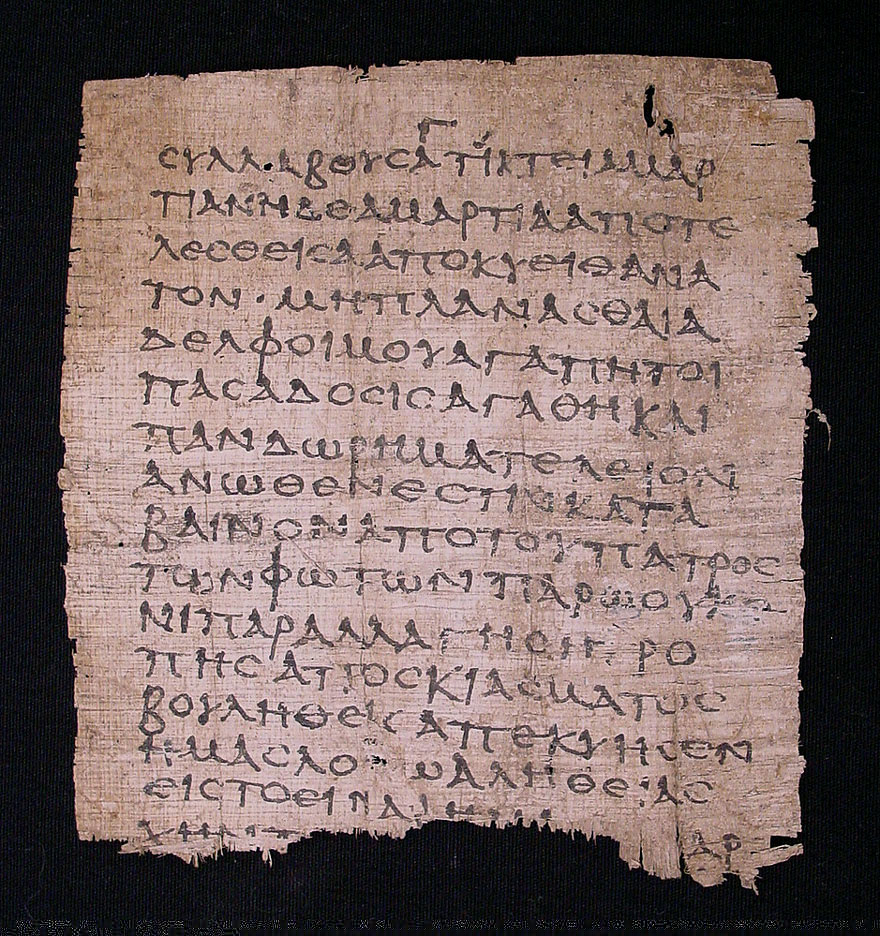 Γ
ϹΥΛΛΑΒΟΥϹΑΤΙΚΤΕΙΑΜΑΡ
ΤΙΑΝΗΔΕΑΜΑΡΤΙΑΑΠΟΤΕ
ΛΕϹΘΕΙϹΑΑΠΟΚΥΕΙΘΑΝΑ
ΤΟΝ·ΜΗΠΛΑΝΑϹΘΑΙΑ
ΔΕΛΦΟΙΜΟΥΑΓΑΠΗΤΟΙ
ΠΑϹΑΔΟϹΙϹΑΓΑΘΗΚΑΙ
ΠΑΝΔΩΡΗΜΑΤΕΛΕΙΟΝ
ΑΝΩΘΕΝΕϹΤΙΝΚΑΤΑ
ΒΑΙΝΟΝΑΠΟΤΟΥΠΑΤΡΟϹ
ΤΩΝΦΩΤΩΝΠΑΡΩΟΥΚΕ
ΝΙΠΑΡΑΛΛΑΓΗϹΗ ΡΟ
ΠΗϹΑΠΟϹΚΙΑϹΜΑΤΟϹ
ΒΟΥΛΗΘΕΙϹΑΠΕΚΥΗϹΕΝ
ΗΜΑϹΛΟ ΩΑΛΗΘΕΙΑϹ
ΕΙϹΤΟΕΙΝΑΙΗΜ
ΑΡ